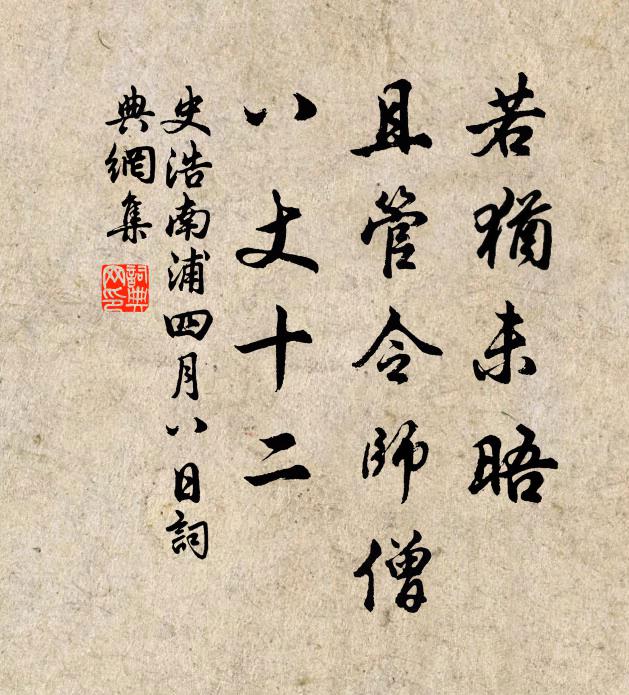 若猶未晤
且管令師僧
八丈十二
史浩南浦四月八日詞
典網集
詞典網印